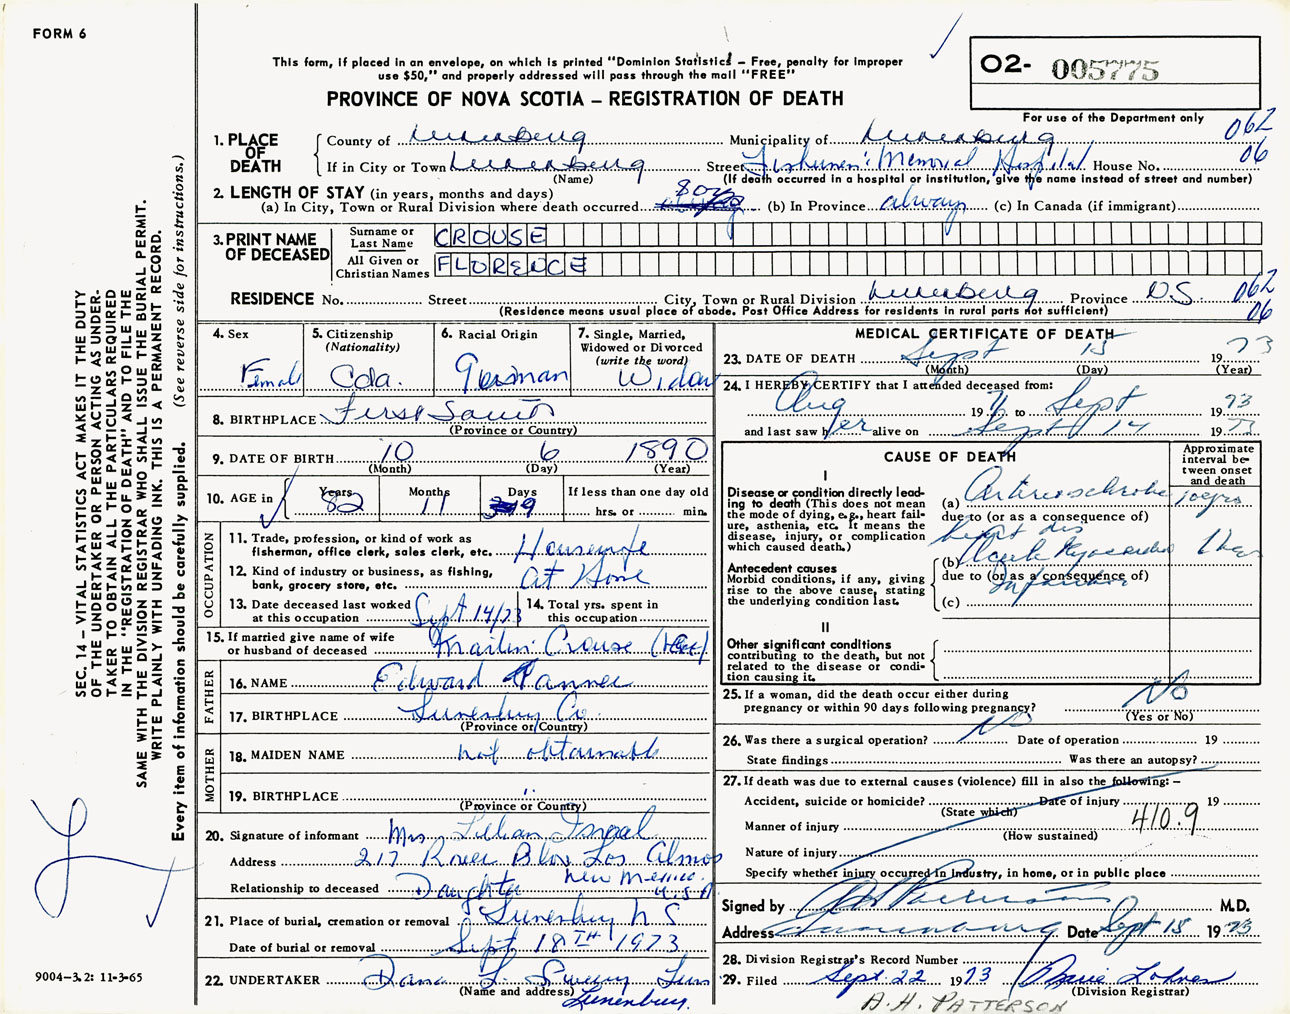 FORM 6
This form, if placed in an envelope, on which is printed "Dominion Statistics – Free, penalty for improper
use $50," and properly addressed will pass through the mail "FREE"
PROVINCE OF NOVA SCOTIA – REGISTRATION OF DEATH
O2- 005775
For use of the Department only
062
06
1. PLACE OF DEATH
County of Lunenburg Municipality of Lunenburg
If in City or Town Lunenburg Street Fishermen's Memorial Hospital House No.
(Name) (If death occurred in a hospital or institution, give the name instead of street and number)
2. LENGTH OF STAY (in years, months and days)
(a) In City, Town or Rural Division where death occurred 80 yrs (b) In Province always (c) In Canada (if immigrant)
3. PRINT NAME OF DECEASED
Surname or Last Name CROUSE
All Given or Christian Names FLORENCE
RESIDENCE No. Street City, Town or Rural Division Lunenburg Province N.S.
(Residence means usual place of abode. Post Office Address for residents in rural parts not sufficient)
062
06
4. Sex Female
5. Citizenship (Nationality) Cda.
6. Racial Origin German
7. Single, Married, Widowed or Divorced (write the word) Widow
8. BIRTHPLACE First South
(Province or County)
9. DATE OF BIRTH 10 6 1890
(Month) (Day) (Year)
10. AGE in Years 82 Months 11 Days 9 If less than one day old hrs. or min.
OCCUPATION
11. Trade, profession, or kind of work as fisherman, office clerk, sales clerk, etc. Housewife
12. Kind of industry or business, as fishing, bank, grocery store, etc. at Home
13. Date deceased last worked at this occupation Sept 14/73
14. Total yrs. spent in this occupation
15. If married give name of wife or husband of deceased Martin Crouse
FATHER
16. NAME Edward
17. BIRTHPLACE Lunenburg Co.
(Province or Country)
MOTHER
18. MAIDEN NAME not obtainable
19. BIRTHPLACE "
(Province or Country)
20. Signature of informant Mrs. Lillian Israel
Address 217 River Blvd Los Almos
New Mexico. U.S.A
Relationship to deceased Daughter
21. Place of burial, cremation or removal Lunenburg N S
Date of burial or removal Sept 18TH 1973
22. UNDERTAKER Dana L. Sweeny Fun
(Name and address)
Lunenburg.
MEDICAL CERTIFICATE OF DEATH
23. DATE OF DEATH Sept 15 1973
(Month) (Day) (Year)
24. I HEREBY CERTIFY that I attended deceased from:
Aug 19 to Sept 1973
and last saw her alive on Sept 14 1973
CAUSE OF DEATH
Approximate interval between onset and death
I
Disease or condition directly leading to death (This does not mean the mode of dying, e.g., heart failure, asthenia, etc. It means the disease, injury, or complication which caused death.)
(a) Arteriosclerotic 10 yrs
due to (or as a consequence of)
heart dis
Antecedent causes
Morbid conditions, if any, giving rise to the above cause, stating the underlying condition last.
(b) Acute Myocardial
due to (or as a consequence of)
Infarction
(c)
II
Other significant conditions
contributing to the death, but not related to the disease or condition causing it.
25. If a woman, did the death occur either during pregnancy or within 90 days following pregnancy? No
(Yes or No)
26. Was there a surgical operation? No Date of operation 19
State findings Was there an autopsy?
27. If death was due to external causes (violence) fill in also the following: –
Accident, suicide or homicide? Date of injury 19
(State which)
Manner of injury 410.9
(How sustained)
Nature of injury
Specify whether injury occurred in industry, in home, or in public place
Signed by A H Patterson M.D.
Address Lunenburg Date Sept 15 1973
28. Division Registrar's Record Number
29. Filed Sept. 22 1973
(Division Registrar)
A.H. PATTERSON
SEC. 14 – VITAL STATISTICS ACT MAKES IT THE DUTY
OF THE UNDERTAKER OR PERSON ACTING AS UNDER-
TAKER TO OBTAIN ALL THE PARTICULARS REQUIRED
IN THE "REGISTRATION OF DEATH" AND TO FILE THE
SAME WITH THE DIVISION REGISTRAR WHO SHALL ISSUE THE BURIAL PERMIT.
WRITE PLAINLY WITH UNFADING INK. THIS IS A PERMANENT RECORD.
Every item of information should be carefully supplied. (See reverse side for instructions.)
9004–3.2: 11-3-65